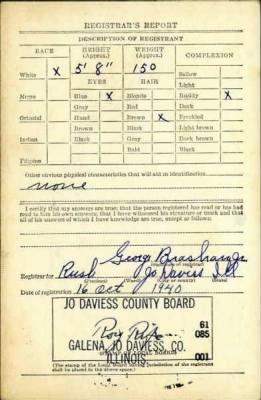 REGISTRAR'S REPORT
DESCRIPTION OF REGISTRANT
RACE HEIGHT (Approx.) WEIGHT (Approx.) COMPLEXION
White X 5' 8" 150 Sallow
EYES HAIR Light
Negro Blue X Blonde Ruddy X
Gray Red Dark
Oriental Hazel Brown X Freckled
Brown Black Light brown
Indian Black Gray Dark brown
Bald Black
Filipino
Other obvious physical characteristics that will aid in identification
none
I certify that my answers are true; that the person registered has read or has had
read to him his own answers; that I have witnessed his signature or mark and that
all of his answers of which I have knowledge are true, except as follows:
George
(Signature of registrar)
Registrar for Rush Jo Daviess Ill
(Precinct) (Ward) (City or county) (State)
Date of registration 16 Oct 1940
JO DAVIESS COUNTY BOARD
61
Roy 085
GALENA, JO DAVIESS, CO.
ILLINOIS 001
(The stamp of the Local Board having jurisdiction of the registrant
shall be placed in the above space.)